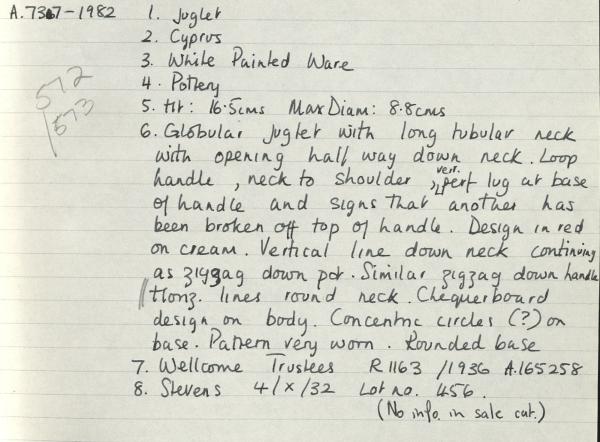 A.7367-1982 1. Juglet
2. Cyprus
3. White Painted Ware
4. Pottery
572
/573
5. Ht: 16.5cms Max Diam: 8.8cms
6. Globular juglet with long tubular neck
with opening half way down neck. Loop
handle, neck to shoulder, vert. perf lug at base
of handle and signs that another has
been broken off top of handle. Design in red
on cream. Vertical line down neck continuing
as zigzag down pot. Similar zigzag down handle
Horiz. lines round neck. Chequerboard
design on body. Concentric circles (?) on
base. Pattern very worn. Rounded base
7. Wellcome Trustees R1163/1936 A.165258
8. Stevens 4/X/32 Lot no. 456.
(No info. in sale cat.)